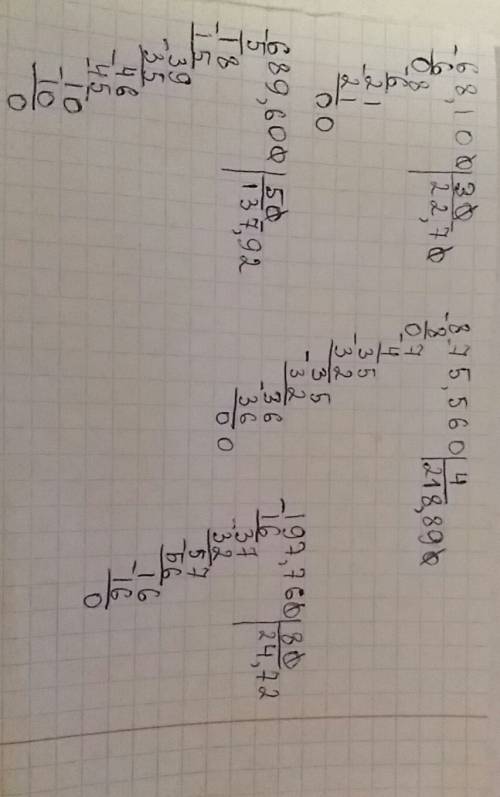 -68,100|30
6 22,70
0-8
6
-21
21
00
-875,560|4
8 218,890
0-7
4
-35
32
-35
32
-36
36
00
-689,600|50
5 137,92
-18
15
-39
35
-46
45
-10
10
0
-197,760|80
16 24,72
-37
32
-57
56
-16
16
0